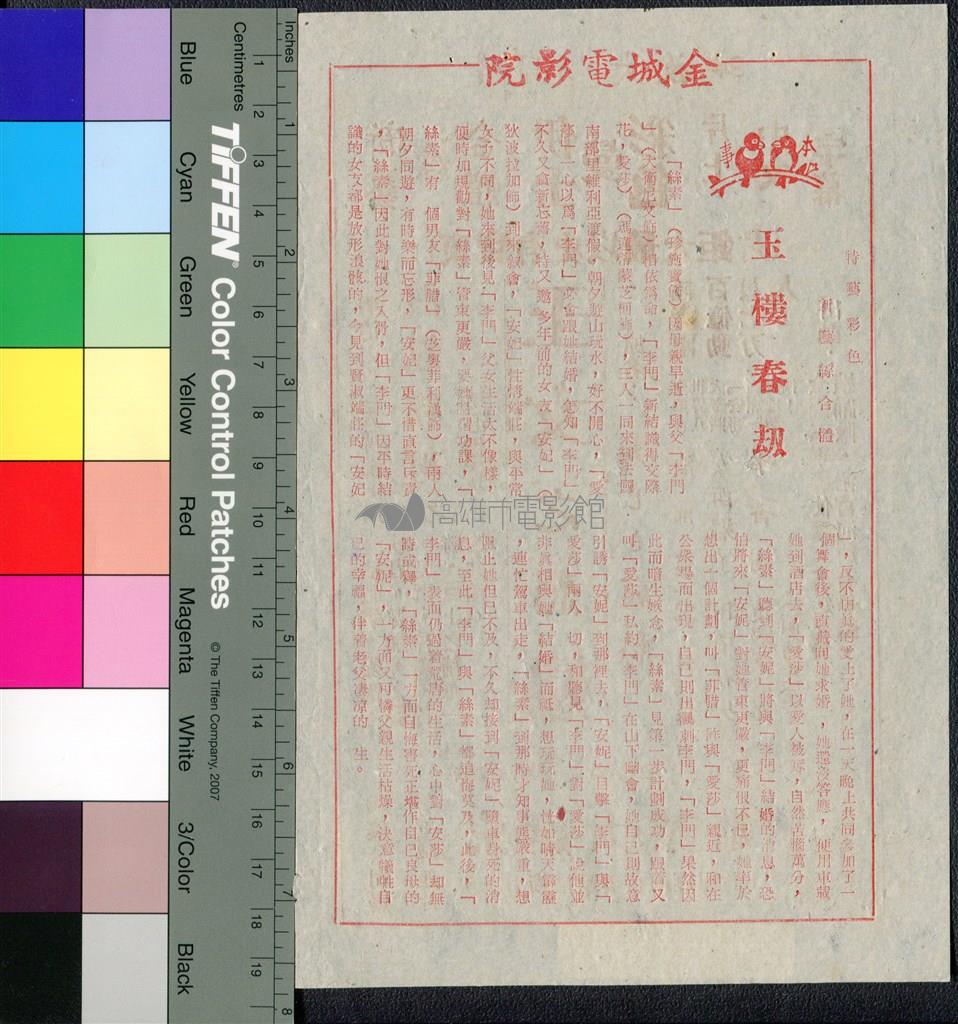 金城電影院
本事
特藝彩色
新藝綜合體
玉樓春劫
「絲素」(珍茜寶飾)因母親早逝,與父「李門
」(大衛尼文飾)相依為命,「李門」新結識得交際
花「愛莎」(
南部里維利亞渡假,朝夕遊山玩水,好不開心,「愛
莎」一心以爲「李門」必會跟她結婚,怎知「李門」
不久又貪新忘舊,特又邀多年前的女友「安妮」(
狄波拉加飾)到來叙會,「安妮」性情端莊,與平常
女子不同,她來到後見「李門」父女生活太不像樣,
便時加規勸對「絲素」管束更嚴,要她溫習功課,「
絲素」有一個男友「菲腊」(
朝夕同遊,有時樂而忘形,「安妮」更不惜直言斥責
,「絲素」因此對她恨之入骨,但「李門」因平時結
識的女友都是放形浪骸的,今見到賢淑端莊的「安妮
」,反不期真的愛上了她,在一天晚上共同參加了一
個舞會後,直截向她求婚,她還沒答應,便用車載
她到酒店去,「愛莎」以愛人被奪,自然苦惱萬分,
「絲素」聽到「安妮」將與「李門」結婚的消息,恐
怕將來「安妮」對她管束更嚴,更痛恨不已,她率於
想出一個計劃,叫「菲腊」詐與「愛莎」親近,和在
公衆塲面出現,自己則出諷刺李門,「李門」果然因
此而暗生嫉念,「絲素」見第一步計劃成功,跟着又
叫「愛莎」私約「李門」在山下幽會,她自己則故意
引誘「安妮」到那裡去,「安妮」目擊「李門」與「
愛莎」兩人一切,和聽見「李門」對「愛莎」說他並
非真相與她「結婚」而祗,想玩玩她,恍如晴天霹靂
,連忙駕車出走,「絲素」到那時才知事態嚴重,想
阻止她但已不及,不久却接到「安妮」墮車身死的消
息,至此「李門」與「絲素」都追悔莫及,此後,「
李門」表面仍過着荒唐的生活,心中對「安莎」却無
時或釋,「絲素」一方面自悔害死正堪作自己良母的
「安妮」,一方面又可憐父親生活枯燥,決意犧牲自
己的幸福,伴着老父淒凉的一生。
高雄市電影館
Inches
Centimetres
1 2 3 4 5 6 7 8 9 10 11 12 13 14 15 16 17 18 19
1 2 3 4 5 6 7 8
TIFFEN® Color Control Patches
© The Tiffen Company, 2007
Blue
Cyan
Green
Yellow
Red
Magenta
White
3/Color
Black